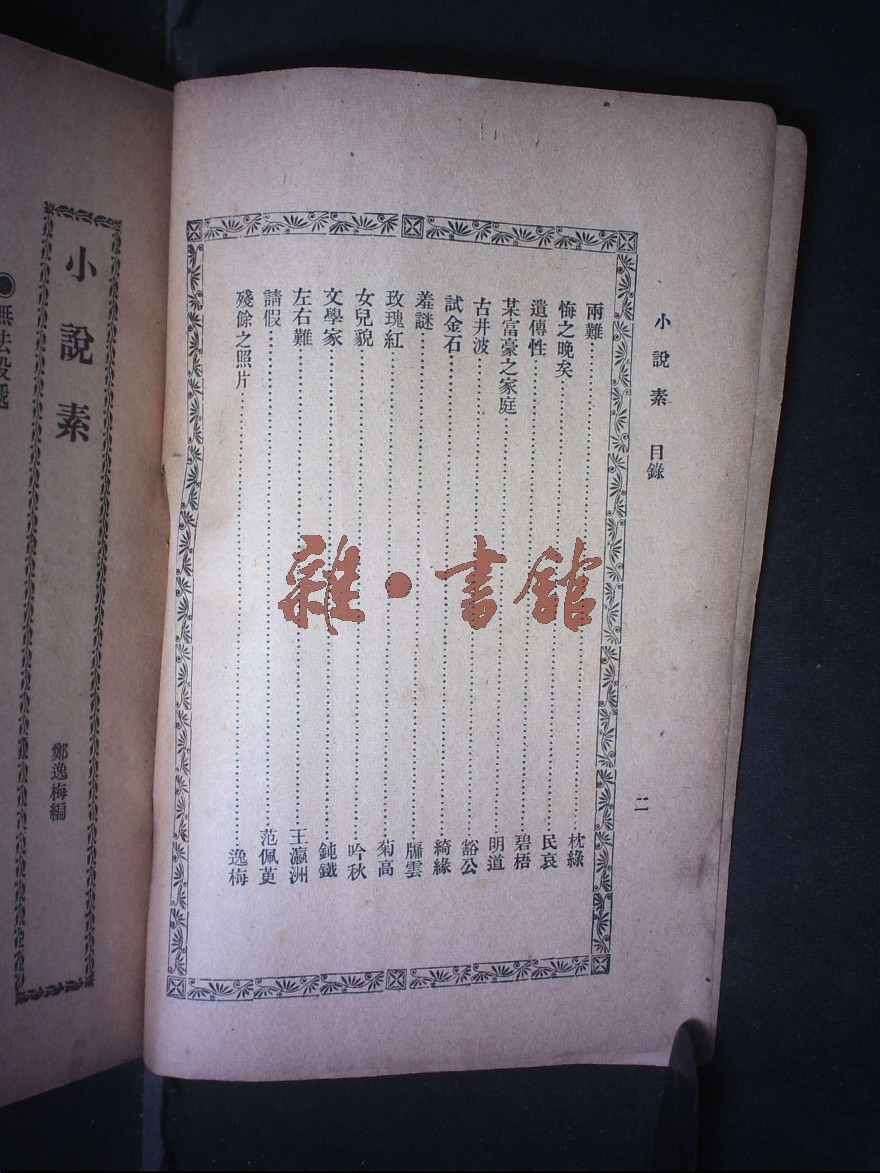 小說素 目錄
二
兩難……枕綠
悔之晚矣……民哀
遺傳性……碧梧
某富豪之家庭……明道
古井波……豁公
試金石……綺緣
羞謎……牖雲
玫瑰紅……菊高
女兒貌……吟秋
文學家……鈍鐵
左右難……王瀛洲
請假……范佩萸
殘餘之照片……逸梅
雜·書館
小說素
鄭逸梅編
●無法投遞